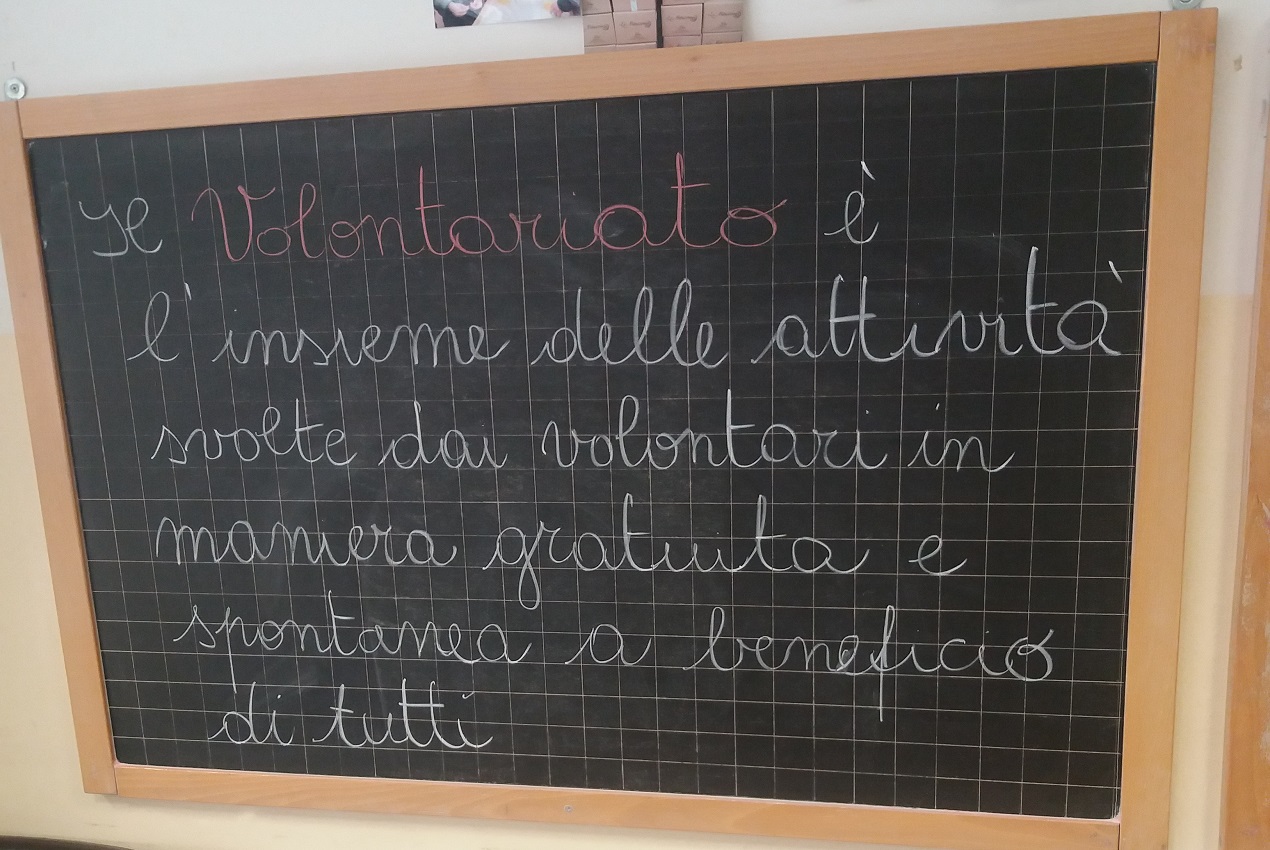 Il Volontariato è
l'insieme delle attività
svolte dai volontari in
maniera gratuita e
spontanea a beneficio
di tutti